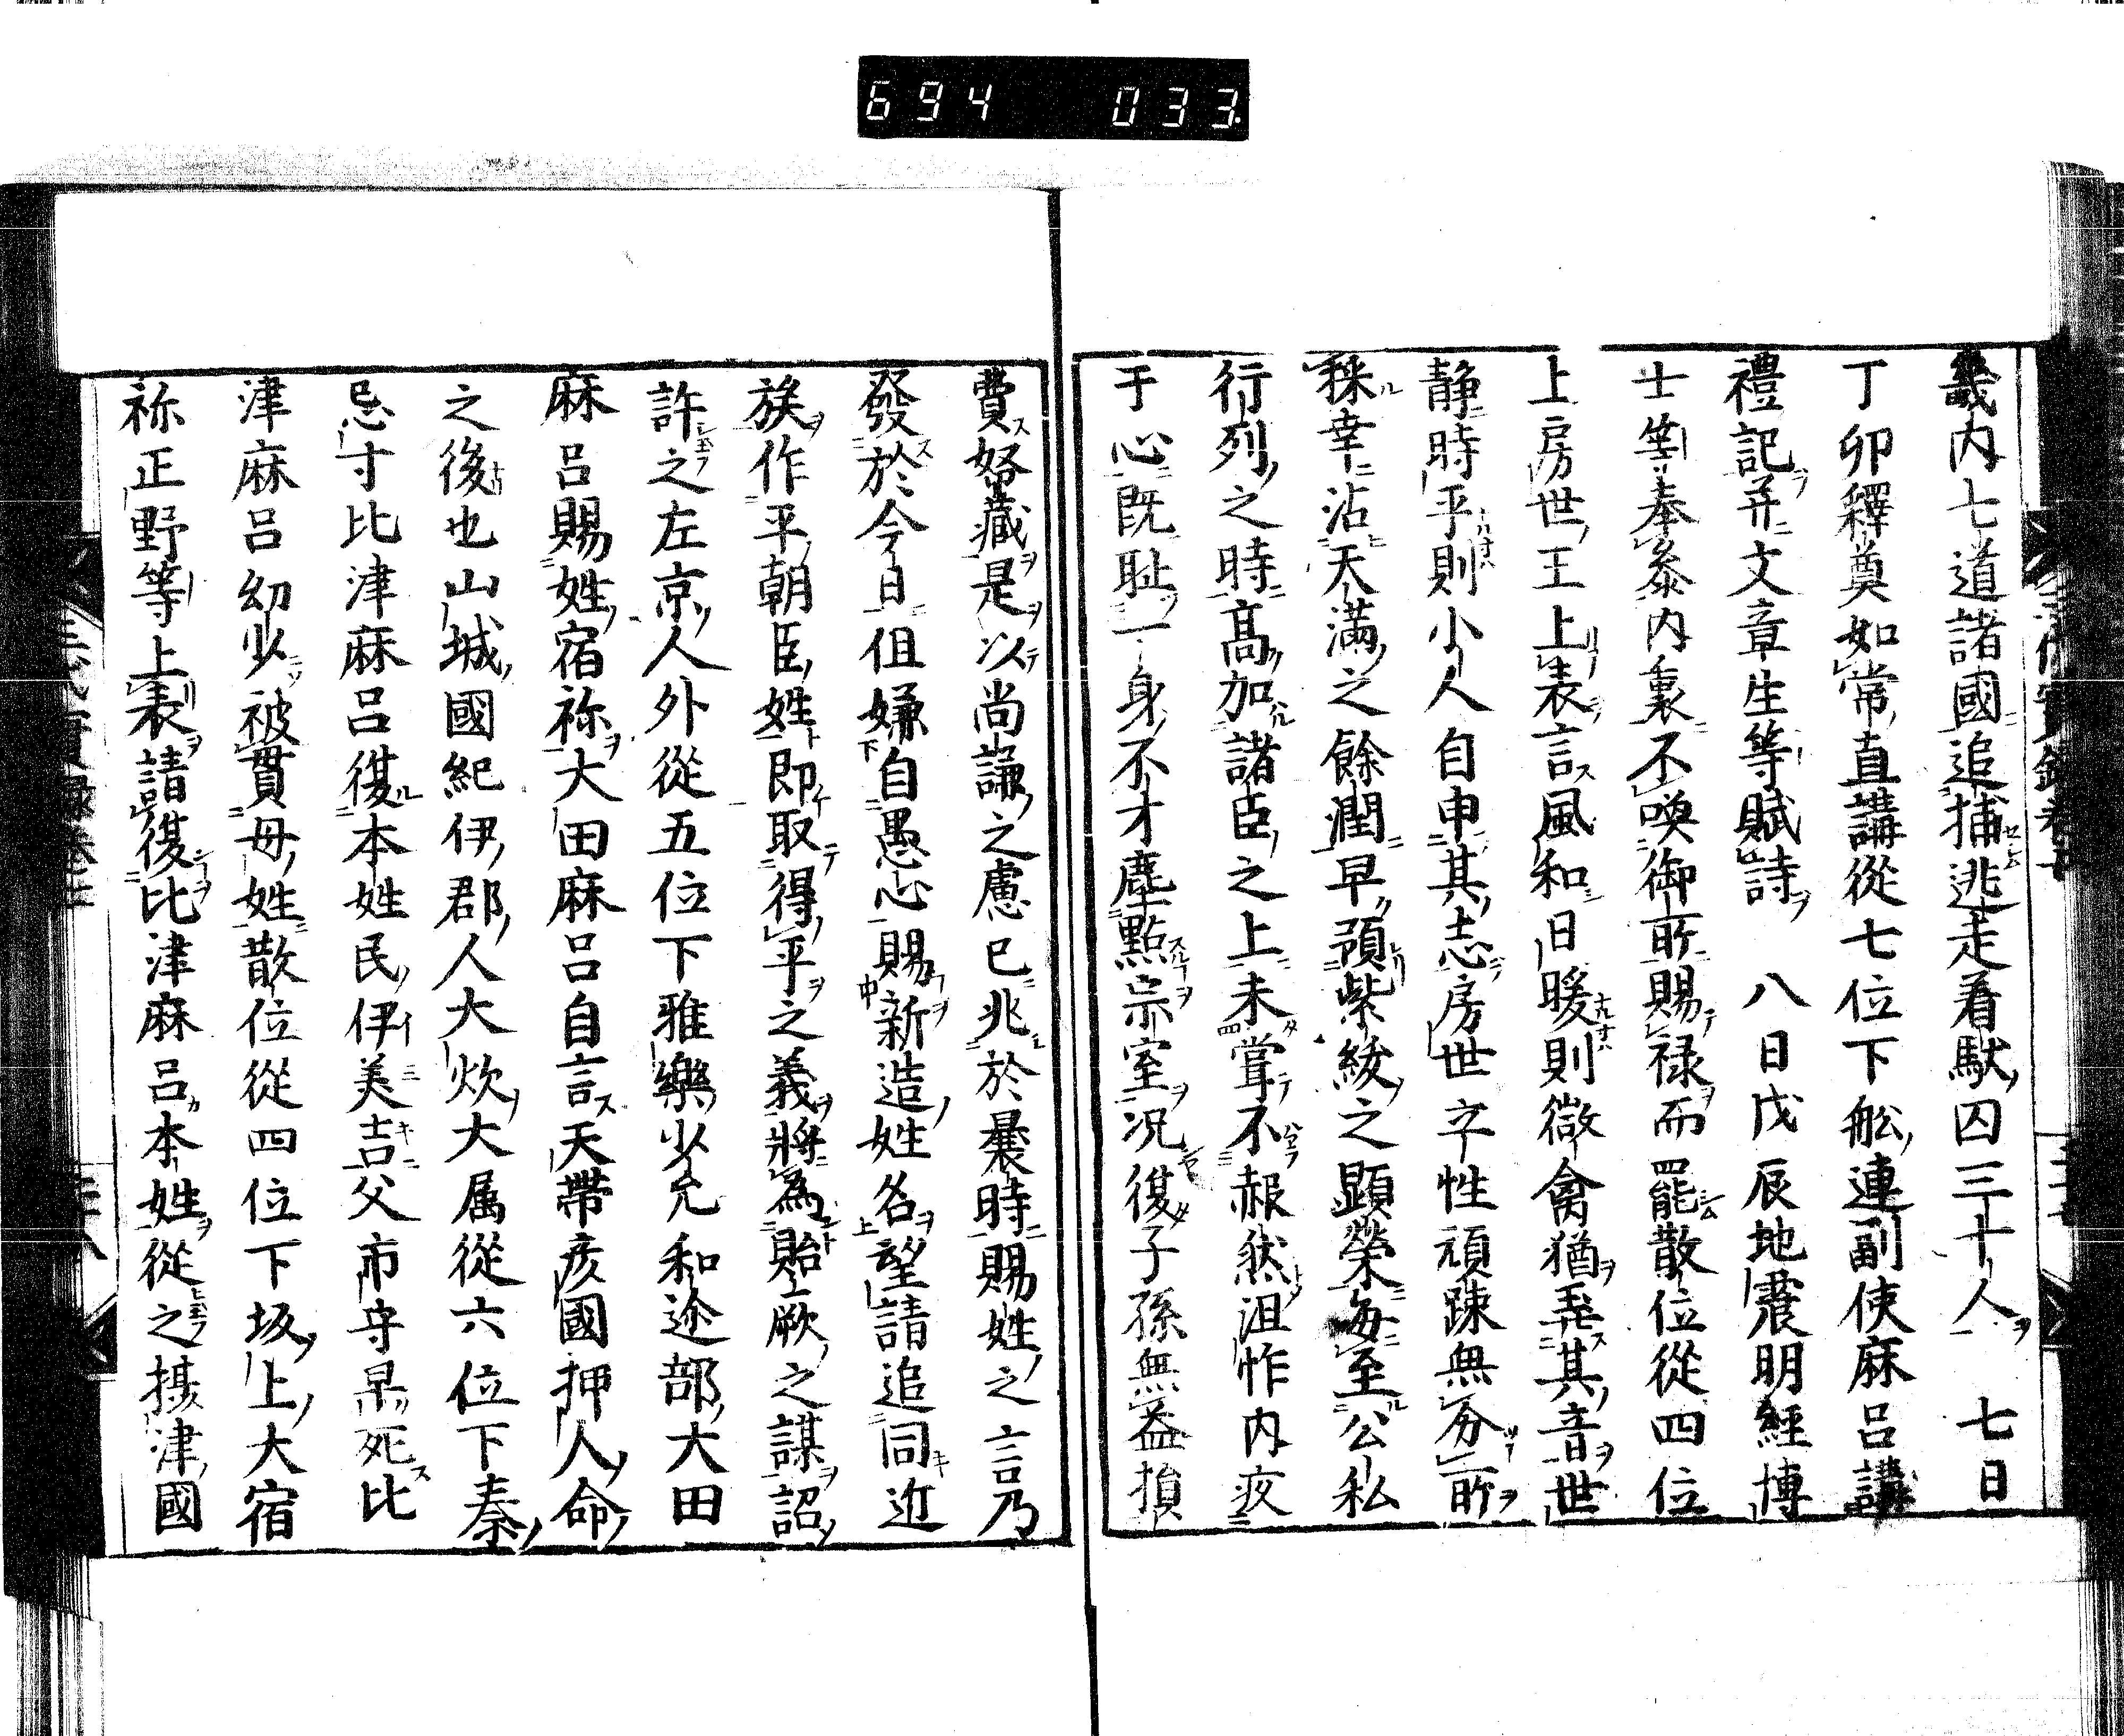 694 033
畿内七道諸國追捕逃走着馱囚三十人 七日
丁卯釋奠如常直講從七位下舩連副使麻呂講
禮記并文章生等賦詩 八日戊辰地震明經博
士等奉參内裏不喚御所賜禄而罷散位從四位
上房世王上表言風和日暖則微禽猶弄其音世
静時平則小人自申其志房世卒性頑踈無分所
稱幸沾天滿之餘潤早預紫綾之顕榮毎至公私
行列之時高加諸臣之上未嘗不赧然沮怍内疚
于心既耻一身不才塵點宗室况復子孫無益損
費帑藏是以尚謙之慮已兆於曩時賜姓之言乃
發於今日但嫌自愚心賜新造姓名望請追同近
族作平朝臣姓即取得平之義將為貽厥之謀詔
許之左京人外從五位下雅樂少允和迩部大田
麻呂賜姓宿祢大田麻呂自言天帶彦國押人命
之後也山城國紀伊郡人大炊大属從六位下秦
忌寸比津麻呂復本姓民伊美吉父市守早死比
津麻呂幼少被貫母姓散位從四位下坂上大宿
祢正野等上表請復比津麻呂本姓從之攝津國